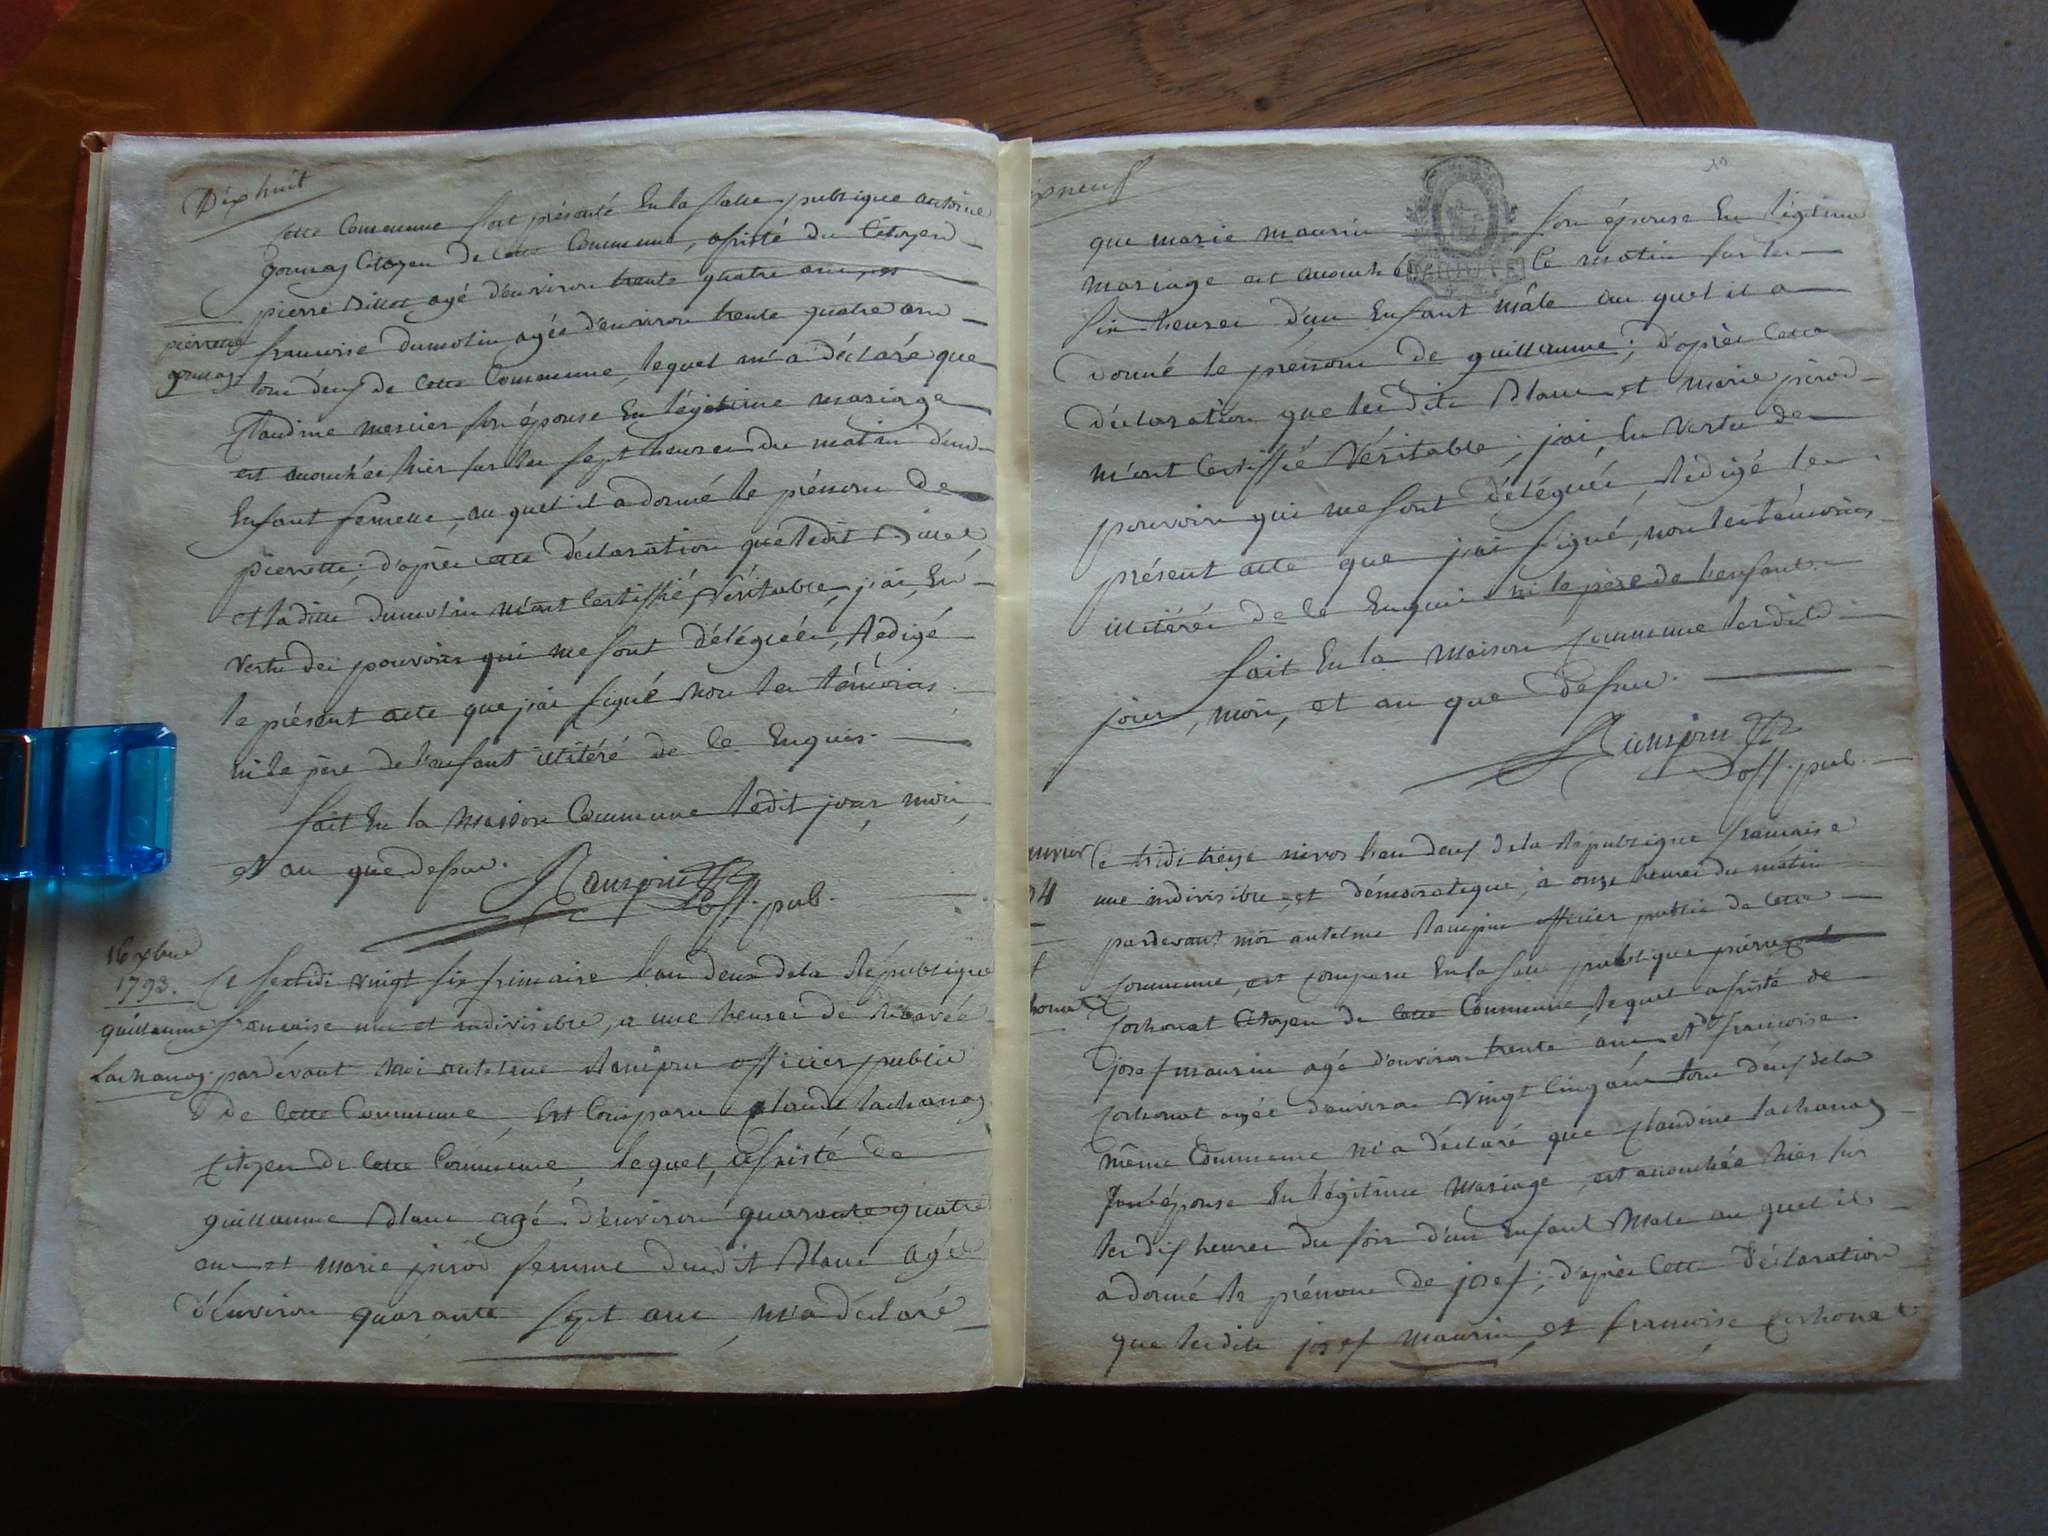 Dix huit
Cette Commune s'est présenté En la salle publique antoine
gonnaz Citoyen de cette Commune, assisté du Citoyen
pierre Billet agé d'environ trente quatre ans, et
pierrette
francoise dumolin agée d'environ trente quatre ans
gonnaz
tous deux de Cette Commune, lequel m'a déclaré que
Claudine mercier son épouse En légitime mariage
est accouchée hier sur les sept heures du matin d'un
Enfant femelle, au quel il a donné le prénom de
pierrette; d'après cette déclaration que ledit Billet
et la ditte dumolin m'ont Certiffié Véritable, j'ai, En
Vertu des pouvoirs qui me sont délégués, Redigé
le présent acte que j'ai signé non les témoins
ni le père de l'enfant illitéré de ce Enquis.
fait En la Maison Commune ledit jour, mois
et an que dessus.
off. pub.
16 xbre
1793.
Ce Sextidi vingt six frimaire l'an deux de la République
guillaume
francaise une et indivisible, a une heures de Relevée
Lachanaz
pardevant moi antelme officier public
de Cette Commune, Est Comparu Claude lachanaz
Citoyen de Cette Commune, lequel, assisté de
guillaume Blanc agé d'environ quarante quatre
ans et marie pirod femme dudit Blanc agée
d'environ quarante sept ans, m'a déclaré
ixneuf
19
que marie maurin son épouse En légitime
mariage est accouchée Ce matin sur les
six heures d'un Enfant mâle au quel il a
Donné le prénom de guillaume; d'après Cette
déclaration que lesdits Blanc et marie pirod
m'ont Certiffié Véritable, j'ai, En Vertu des
pouvoirs qui me sont délégués, Redigé le
présent acte que j'ai signé, non les témoins
illitérés de ce Enquis ni le père de l'enfant.
fait En la Maison Commune lesdits
jour, mois, et an que dessus.
off. pub.
Ce tridi treize nivos l'an deux de la République francaise
une indivisible, et démocratique, à onze heures du matin
94
pardevant moi antelme officier public de Cette
Commune, est Comparu En la salle publique pierre
Cochonat Citoyen de Cette Commune, lequel assisté de
josef maurin agé d'environ trente ans et de francoise
Cochonat agée d'environ vingt Cinq ans tous deux de la
même Commune m'a déclaré que Claudine lachanaz
son épouse En légitime Mariage, est accouchée hier sur
les dix heures du soir d'un Enfant Male au quel il
a donné le prénom de josef; d'après Cette Déclaration
que lesdits josef maurin, et francoise Cochonat